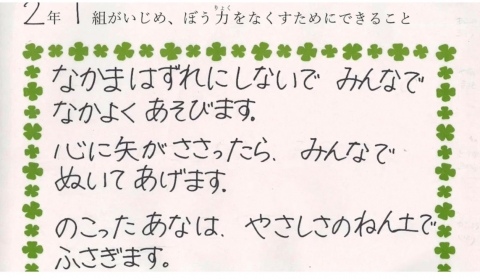 2年 1組がいじめ、ぼう力をなくすためにできること
なかまはずれにしないで みんなで
なかよく あそびます。
心に矢がささったら、みんなで
ぬいて あげます。
のこった あなは、やさしさのねん土で
ふさぎます。